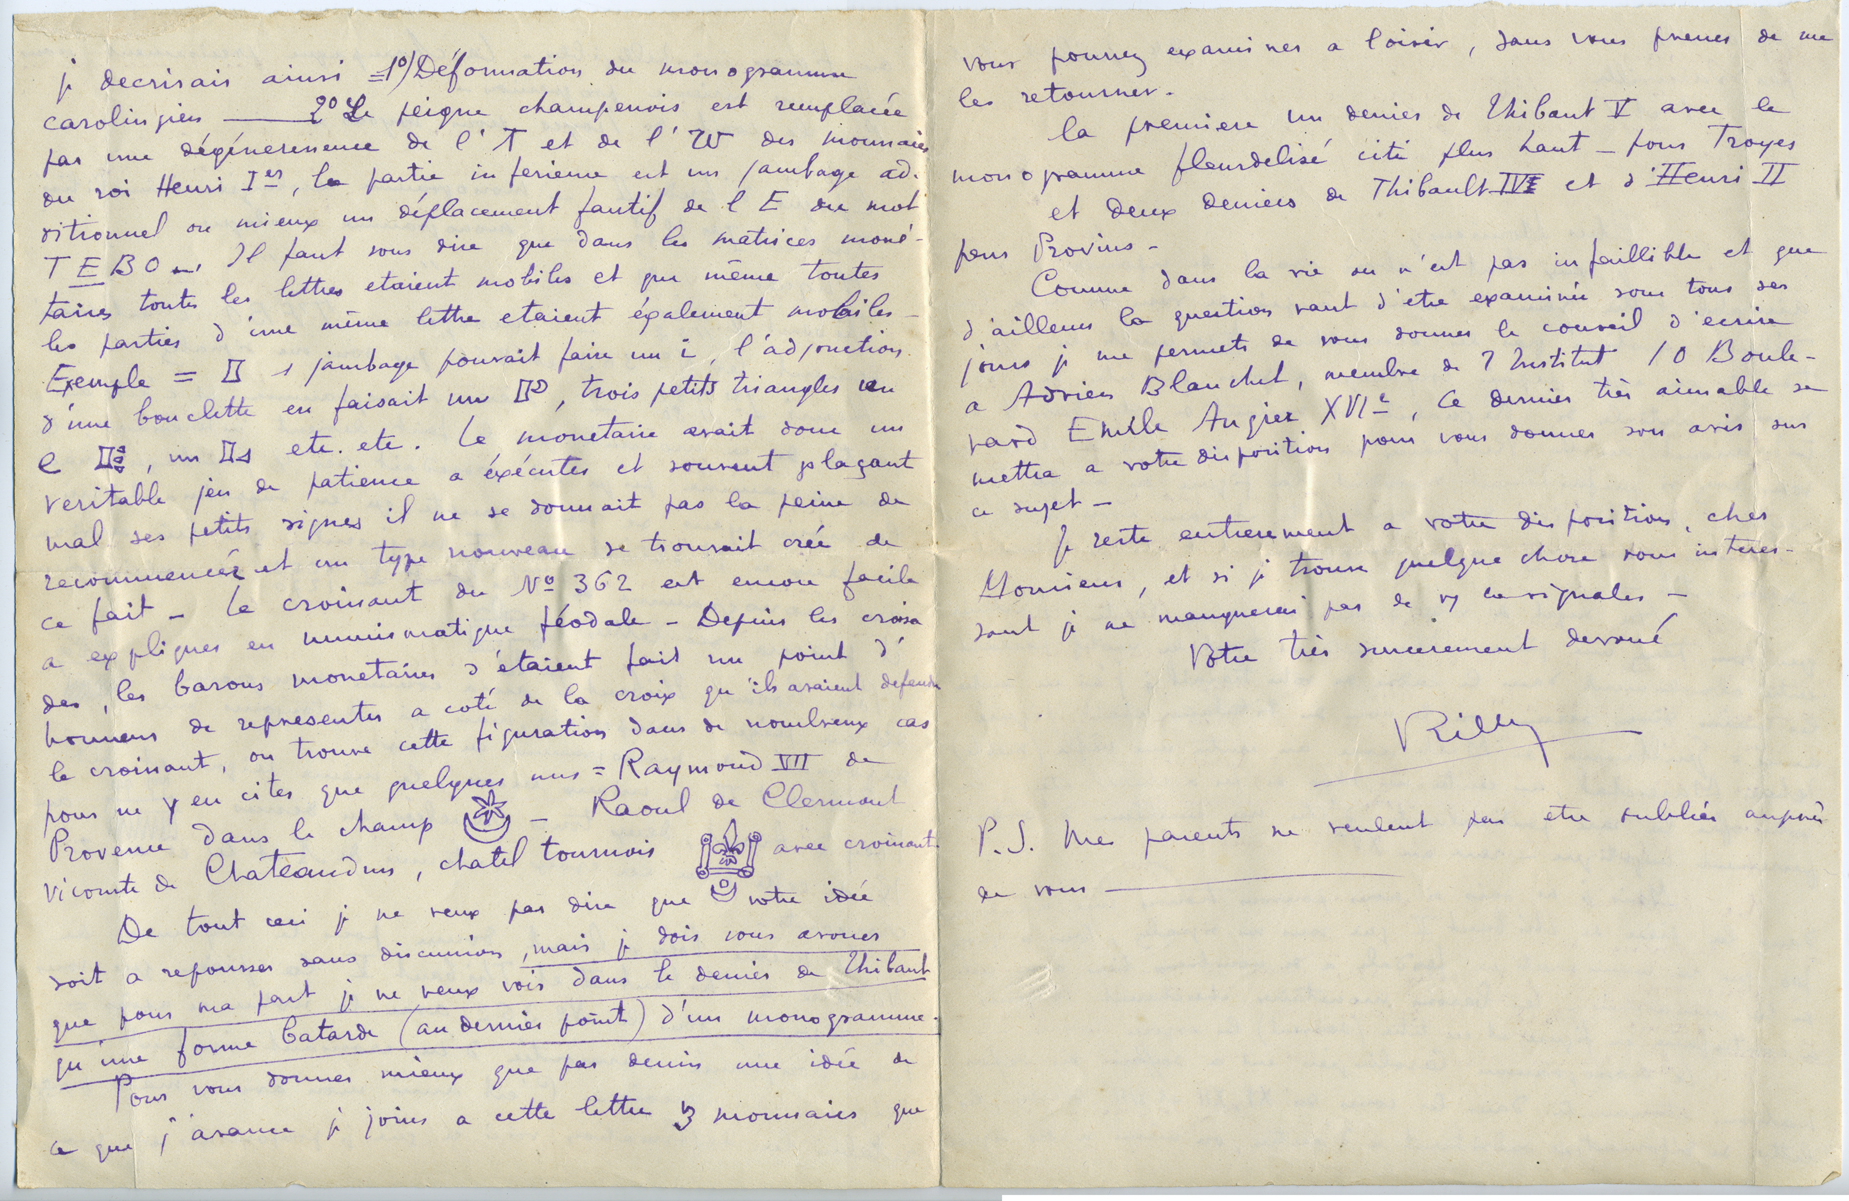 je decrirais ainsi = 1°) Déformation du monogramme
carolingien ——— 2° Le peigne champenois est remplacée
par une dégénerescence de l'T et de l'W des monnaies
du roi Henri Ier, la partie inferieure est un jambage ad-
ditionnel ou mieux un déplacement fautif de l E du mot
TEBO... Il faut vous dire que dans les matrices moné-
taires toutes les lettres etaient mobiles et que même toutes
les parties d'une même lettre etaient également mobiles -
Exemple = I 1 jambage pouvait faire un i, l'adjonction
d'une bouclette en faisait un P, trois petits triangles un
E, un L etc. etc. Le monetaire avait donc un
veritable jeu de patience a éxécuter et souvent plaçant
mal ses petits signes il ne se donnait pas la peine de
recommencer et un type nouveau se trouvait crée de
ce fait - Le croissant du No 362 est encore facile
a expliquer en numismatique féodale - Depuis les croisa
des, les barons monetaires s'étaient fait un point d'
honneur de representer a coté de la croix qu'ils avaient defendu
le croissant, on trouve cette figuration dans de nombreux cas
pour ne y en citer que quelques uns = Raymond VII de
Provence dans le champ - Raoul de Clermont
Vicomte de Chateaudun, chatel tournois avec croissant
De tout ceci je ne veux pas dire que votre idée
soit a repousser sans discussion, mais je dois vous avouer
que pour ma part je ne veux voir dans le denier de Thibaut
qu'une forme batarde (au dernier point) d'un monogramme.
Pour vous donner mieux que par dessin une idée de
ce que j'avance je joins a cette lettre 3 monnaies que
vous pourrez examiner a loisir, sans vous presser de me
les retourner.
la premiere un denier de Thibaut V avec le
monogramme fleurdelisé cité plus haut - pour Troyes
et deux deniers de Thibault IV et d'Henri II
pour Provins -
Comme dans la vie on n'est pas infaillible et que
d'ailleurs la question vaut d'etre examinée sous tous ses
jours je me permets de vous donner le conseil d'ecrire
a Adrien Blanchet, membre de l'Institut 10 Boule-
vard Emile Augier XVIe, ce dernier très aimable se
mettra a votre disposition pour vous donner son avis sur
ce sujet -
Je reste entierement a votre disposition, cher
Monsieur, et si je trouve quelque chose vous interes-
sant je ne manquerai pas de vs le signaler -
Votre très sincerement devoué
Rilly
P.S. Mes parents ne veulent pas etre oubliés auprès
de vous ———